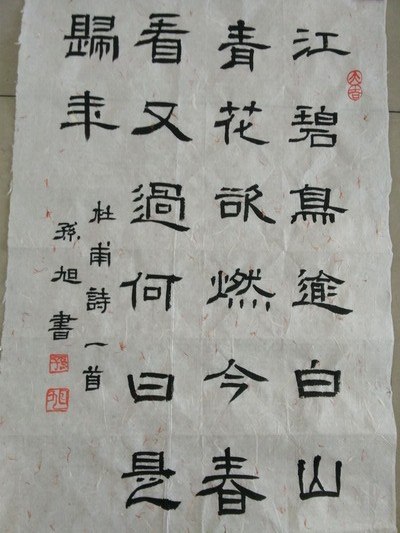 江碧鳥逾白山
青花欲燃今春
看又過何日是
歸年
杜甫詩一首
孫旭書